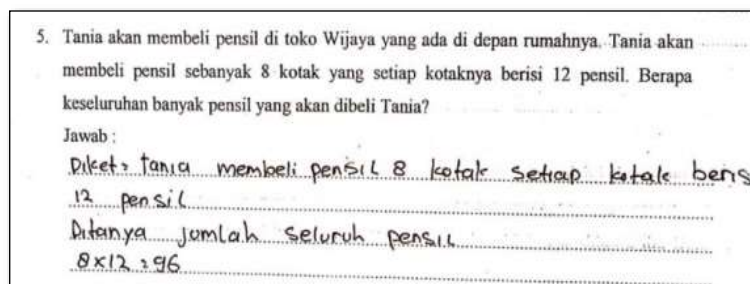 5. Tania akan membeli pensil di toko Wijaya yang ada di depan rumahnya. Tania akan
membeli pensil sebanyak 8 kotak yang setiap kotaknya berisi 12 pensil. Berapa
keseluruhan banyak pensil yang akan dibeli Tania?
Jawab :
Diket : tania membeli pensil 8 kotak setiap kotak beris
12 pensil
Ditanya jumlah seluruh pensil
8 x 12 = 96